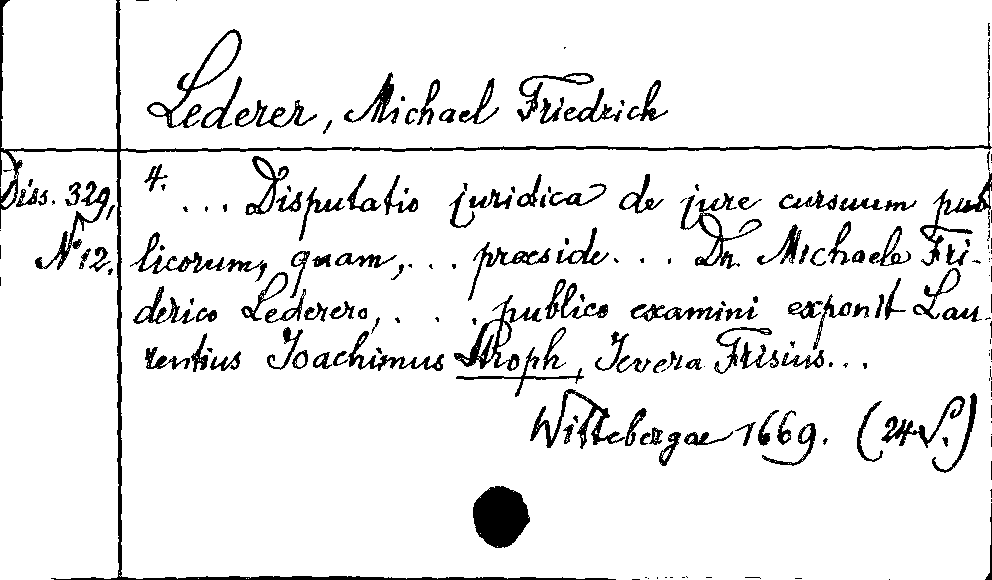 Lederer, Michael Friedrich
Diss. 329,
N° 12.
4.
... Disputatio juridica de jure cursuum pub
licorum, quam, ... præside ... Dn. Michaele Fri-
derico Lederero, ... publico examini exponit Lau-
rentius Joachimus Stroph, Jevera Frisius...
Wittebergae 1669. (24 S.)